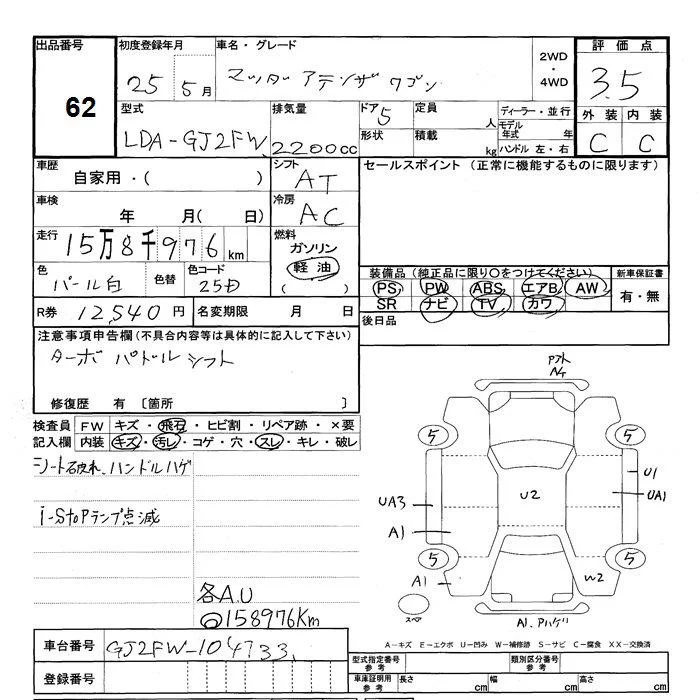 出品番号 初度登録年月 車名・グレード 2WD・4WD 評価点
62 25 5月 マツダ アテンザ ワゴン 3.5
型式 排気量 ドア 5 定員 人 ディーラー・並行 外装 内装
LDA-GJ2FW 2200cc 形状 積載 kg モデル年式 年 C C
ハンドル 左・右
車歴 シフト セールスポイント (正常に機能するものに限ります)
自家用・( ) AT
車検 冷房
年 月( 日) AC
走行 燃料
15万8千976km ガソリン
軽油
( )
色 色替 色コード 装備品 (純正品に限り○をつけてください) 新車保証書
パール白 25D PS PW ABS エアB AW 有・無
R券 12,540円 名変期限 月 日 SR ナビ TV カワ
後日品
注意事項申告欄 (不具合内容等は具体的に記入して下さい)
ターボ パドルシフト
修復歴 有 〔箇所 〕
検査員 FW キズ・飛石・ヒビ割・リペア跡・×要
記入欄 内装 キズ・汚レ・コゲ・穴・スレ・キレ・破レ
シート破れ、ハンドルハゲ
i-Stopランプ点滅
各A.U
158976Km
5 5
U1
U2 UA1
UA3
A1
5 5
A1 W2
スペア
A1.アハゲ
A-キズ E-エクボ U-凹み W-補修跡 S-サビ C-腐食 XX-交換済
車台番号 GJ2FW-104733
登録番号
型式指定番号 参考 類別区分番号 参考
車庫証明用 参考 長さ cm 幅 cm 高さ cm